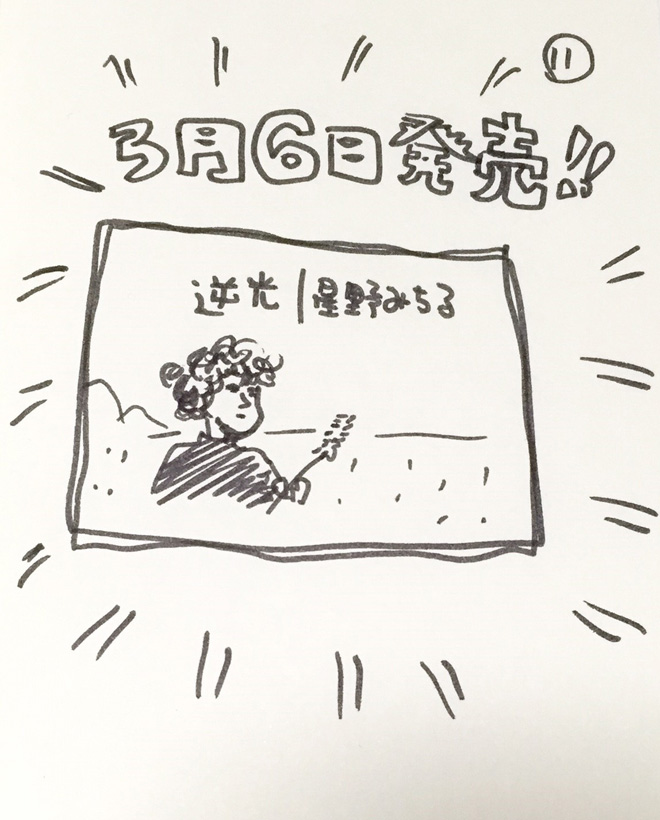 11
3月6日発売!!
逆光|星野みちる